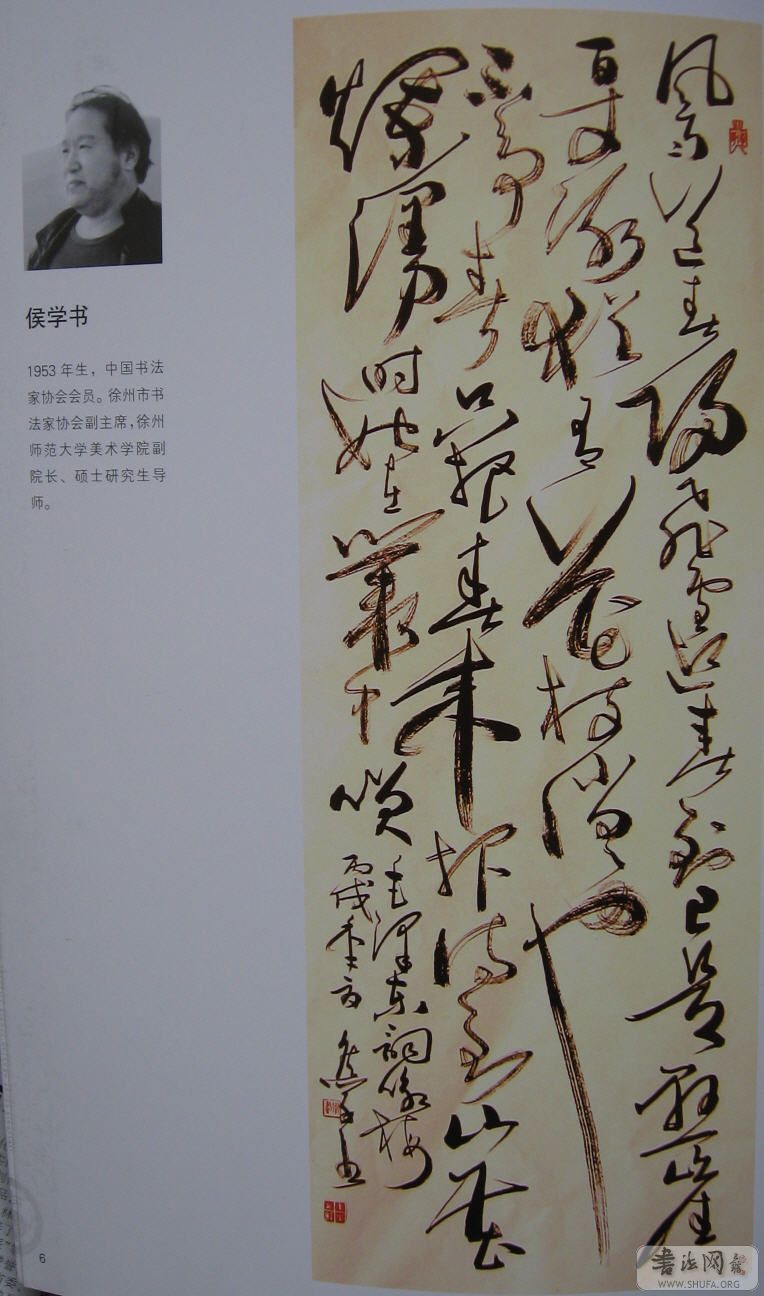 侯学书
1953 年生，中国书法
家协会会员。徐州市书
法家协会副主席，徐州
师范大学美术学院副
院长、硕士研究生导
师。
風雨送春歸飛雪迎春到已是懸崖
百丈冰猶有花枝俏也
不爭春只把春來報待到山花
爛漫時她在叢中笑
毛澤東詞詠梅
丙戌季夏 侯學書
6
書法网
WWW.SHUFA.ORG